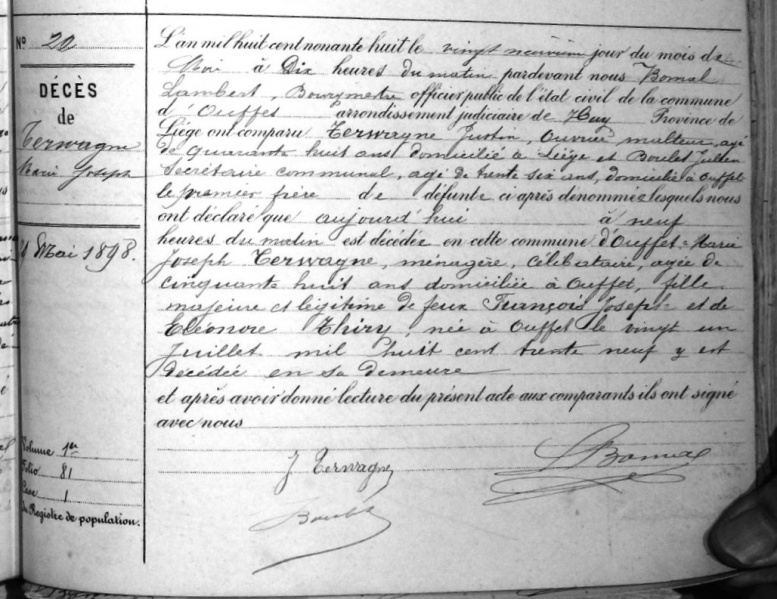 N° 20
DÉCÈS
de
Terwagne
Marie Joseph
Mai 1898.
Volume 1er
Folio 81
Case 1
du Registre de population.
L'an mil huit cent nonante huit le vingt neuvième jour du mois de
Mai à Dix heures du matin pardevant nous Bomal
Lambert, Bourgmestre officier public de l'état civil de la commune
d'Ouffet arrondissement judiciaire de Huy Province de
Liège ont comparu Terwagne Justin, Ouvrier malteur, agé
de quarante huit ans domicilié à Liège et Boulet Julien
Secrétaire communal, agé de trente six ans, domicilié à Ouffet
le premier frère de défunte ci après dénommée lesquels nous
ont déclaré que aujourd'hui à neuf
heures du matin est décédée en cette commune d'Ouffet Marie
Joseph Terwagne, ménagère, célibataire, agée de
cinquante huit ans domiciliée à Ouffet, fille
majeure et légitime de feux François Joseph et de
Eléonore Thiry, née à Ouffet le vingt un
Juillet mil huit cent trente neuf y est
décédée en sa demeure
et après avoir donné lecture du présent acte aux comparants ils ont signé
avec nous
J Terwagne
LBomal
Boulet